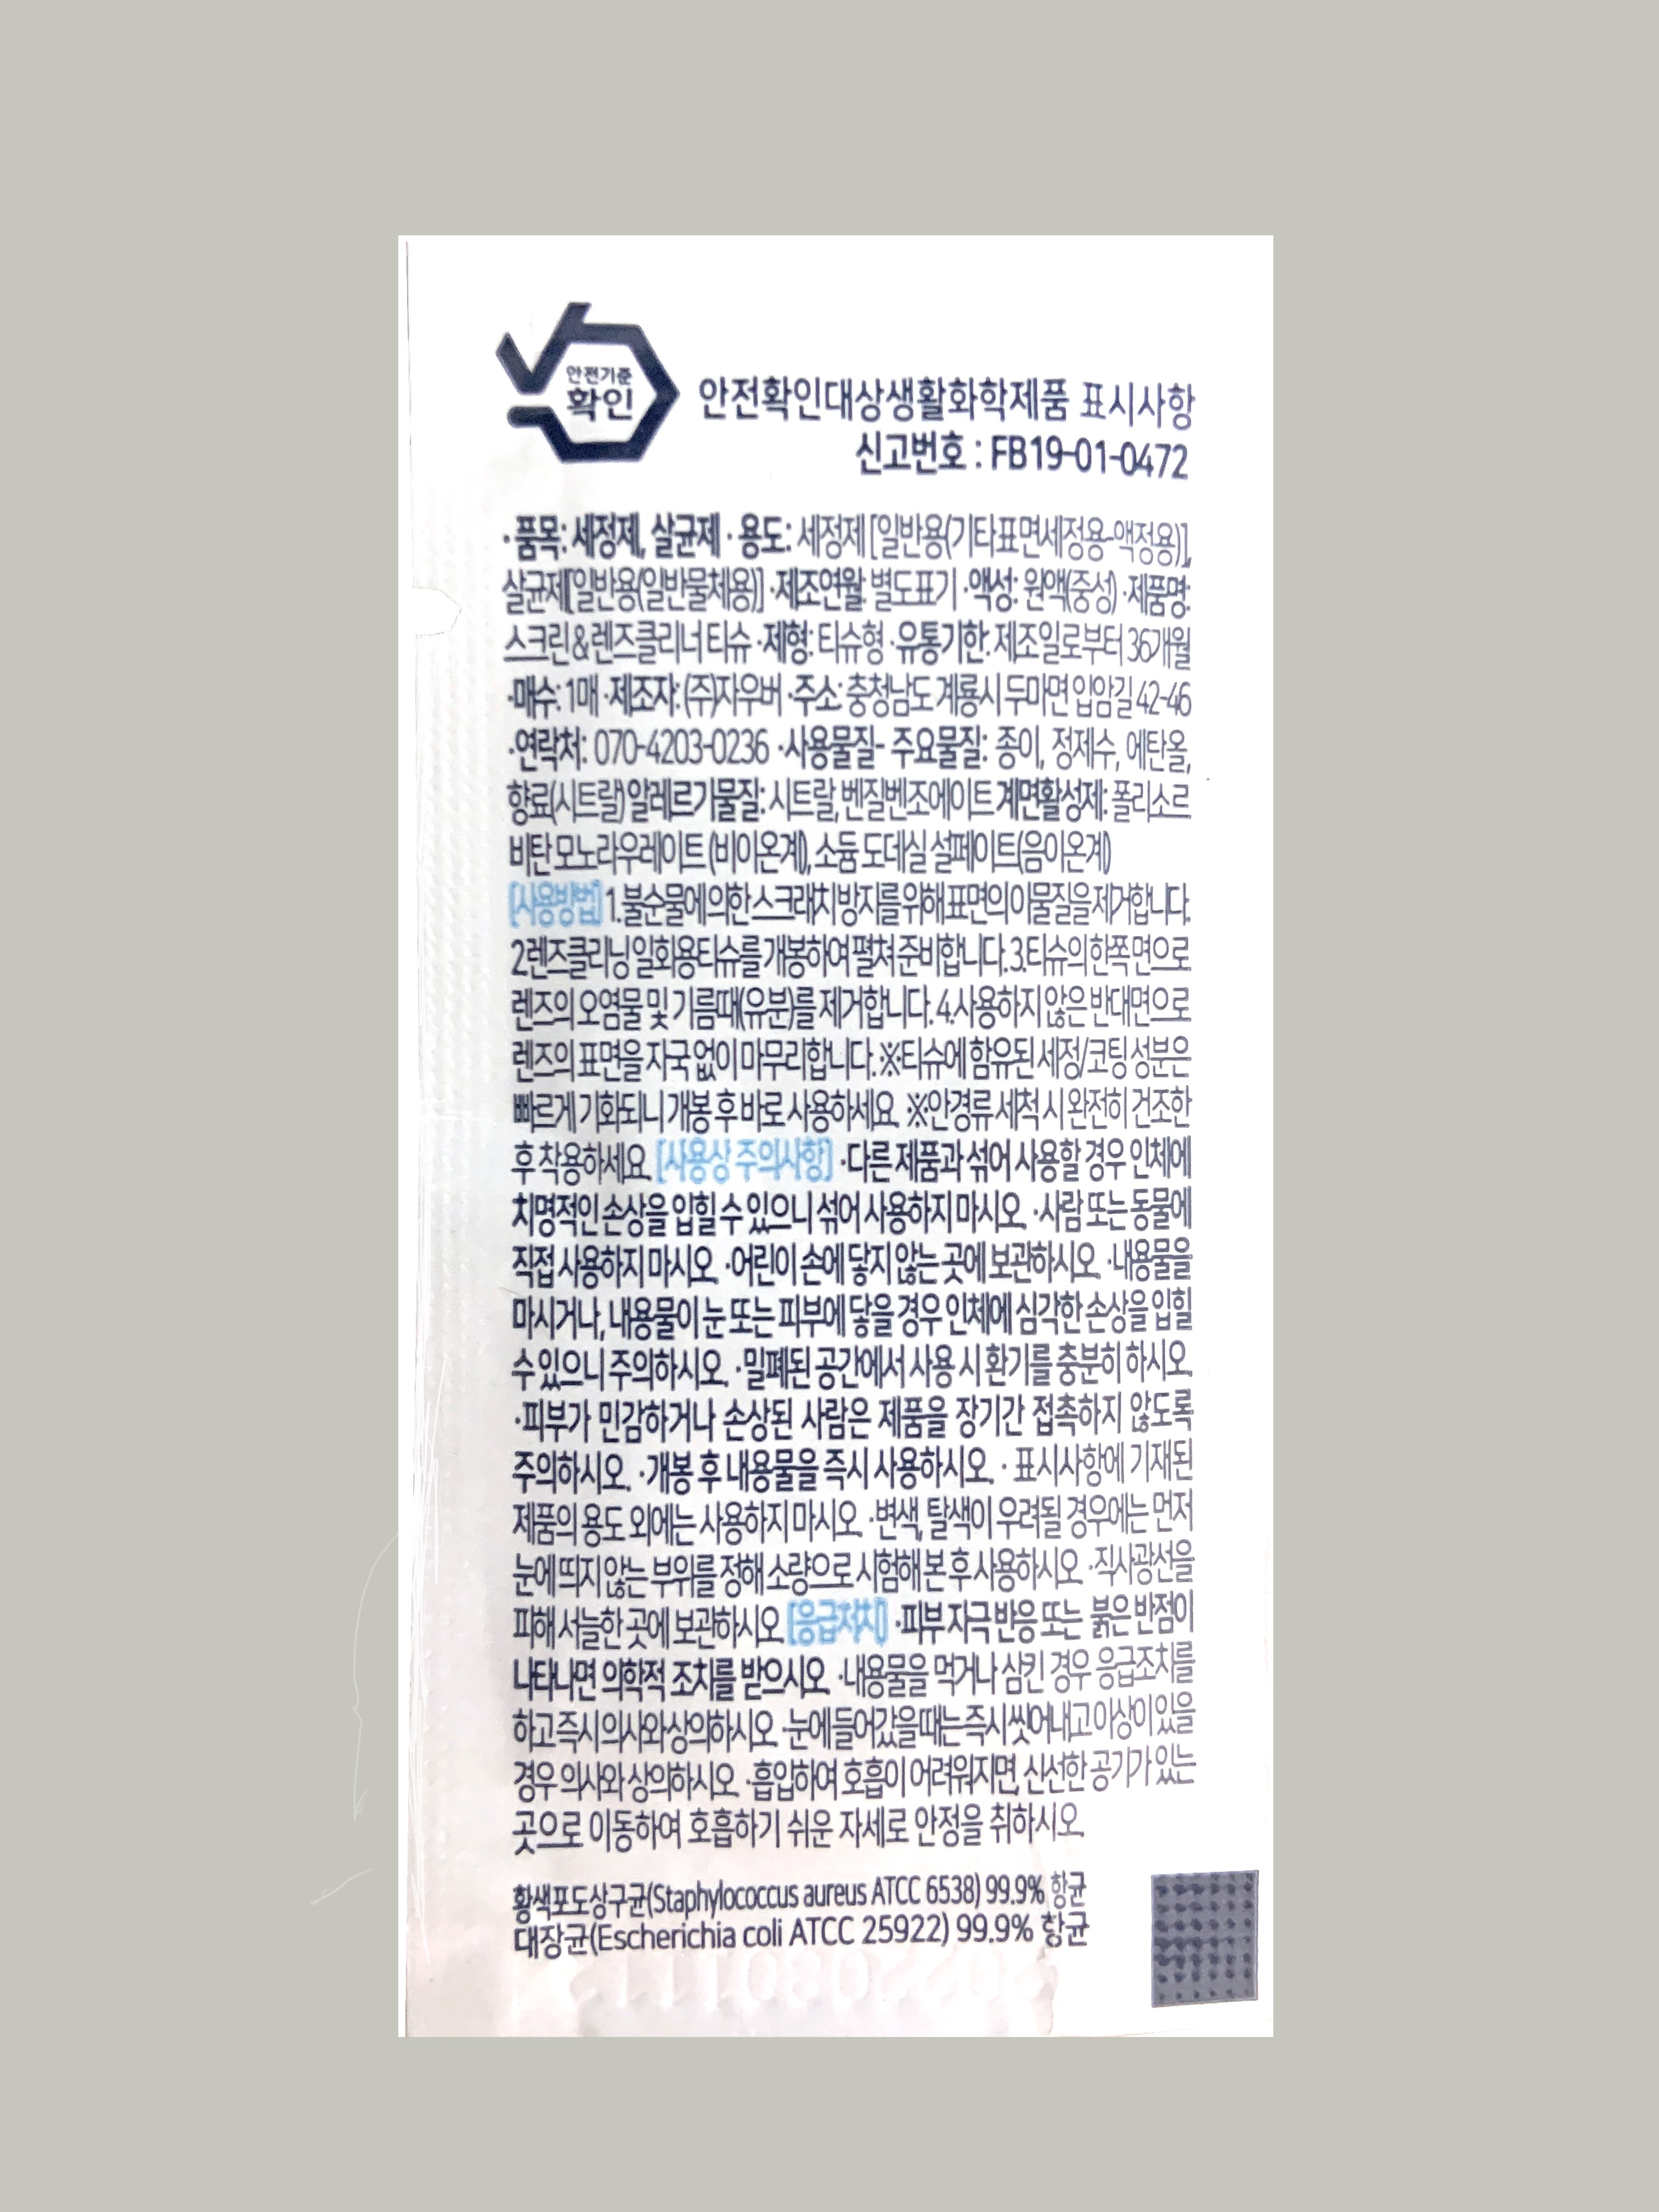 안전기준
확인
안전확인대상생활화학제품 표시사항
신고번호 : FB19-01-0472
·품목: 세정제, 살균제 · 용도: 세정제 [일반용(기타표면세정용-액정용)],
살균제[일반용(일반물체용)] ·제조연월: 별도표기 ·액성: 원액(중성) ·제품명:
스크린&렌즈클리너 티슈 ·제형: 티슈형 ·유통기한: 제조일로부터 36개월
·매수: 1매 ·제조자: (주)자우버 ·주소: 충청남도 계룡시 두마면 입암길 42-46
·연락처: 070-4203-0236 ·사용물질- 주요물질: 종이, 정제수, 에탄올,
향료(시트랄) 알레르기물질: 시트랄, 벤질벤조에이트 계면활성제: 폴리소르
비탄 모노라우레이트 (비이온계), 소듐 도데실 설페이트(음이온계)
[사용방법] 1.불순물에 의한 스크래치 방지를 위해 표면의 이물질을 제거합니다.
2.렌즈클리닝 일회용티슈를 개봉하여 펼쳐 준비합니다. 3.티슈의 한쪽 면으로
렌즈의 오염물 및 기름때(유분)를 제거합니다. 4.사용하지 않은 반대면으로
렌즈의 표면을 자국 없이 마무리합니다. ※티슈에 함유된 세정/코팅 성분은
빠르게 기화되니 개봉 후 바로 사용하세요. ※안경류 세척 시 완전히 건조한
후 착용하세요. [사용상 주의사항] ·다른 제품과 섞어 사용할 경우 인체에
치명적인 손상을 입힐 수 있으니 섞어 사용하지 마시오. ·사람 또는 동물에
직접 사용하지 마시오. ·어린이 손에 닿지 않는 곳에 보관하시오. ·내용물을
마시거나, 내용물이 눈 또는 피부에 닿을 경우 인체에 심각한 손상을 입힐
수 있으니 주의하시오. ·밀폐된 공간에서 사용 시 환기를 충분히 하시오.
·피부가 민감하거나 손상된 사람은 제품을 장기간 접촉하지 않도록
주의하시오. ·개봉 후 내용물을 즉시 사용하시오. · 표시사항에 기재된
제품의 용도 외에는 사용하지 마시오. ·변색, 탈색이 우려될 경우에는 먼저
눈에 띄지 않는 부위를 정해 소량으로 시험해 본 후 사용하시오. ·직사광선을
피해 서늘한 곳에 보관하시오. [응급처치] ·피부 자극 반응 또는 붉은 반점이
나타나면 의학적 조치를 받으시오. ·내용물을 먹거나 삼킨 경우 응급조치를
하고 즉시 의사와 상의하시오. ·눈에 들어갔을 때는 즉시 씻어내고 이상이 있을
경우 의사와 상의하시오. ·흡입하여 호흡이 어려워지면, 신선한 공기가 있는
곳으로 이동하여 호흡하기 쉬운 자세로 안정을 취하시오.
황색포도상구균(Staphylococcus aureus ATCC 6538) 99.9% 항균
대장균(Escherichia coli ATCC 25922) 99.9% 항균